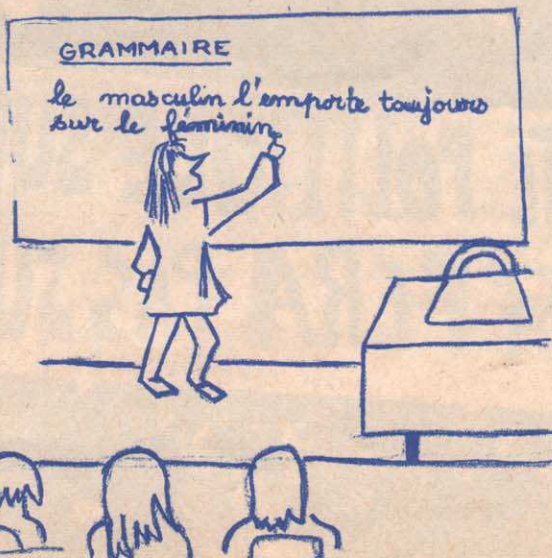 GRAMMAIRE
le masculin l'emporte toujours
sur le féminin